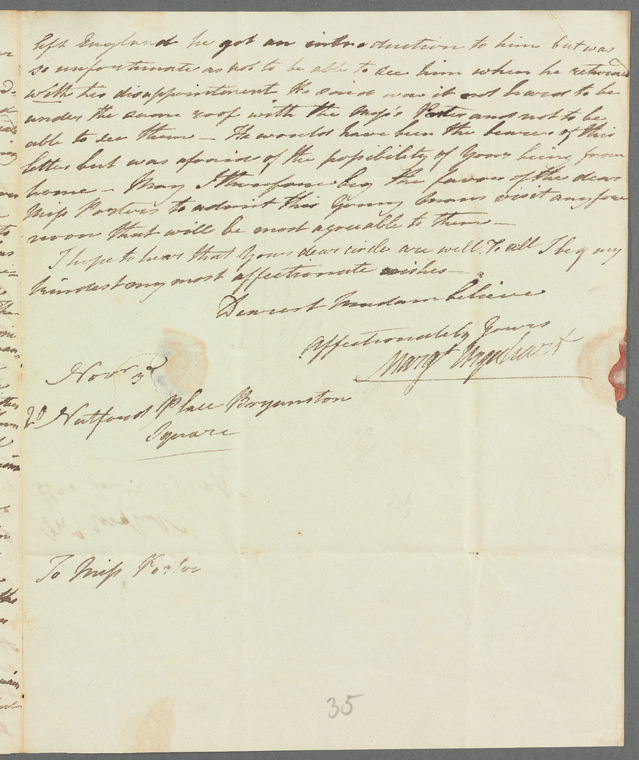 left England he got an introduction to him but was
so unfortunate as not to be able to see him when he returned
with his disappointment he said was it not hard to be
under the same roof with the Miss's Porter and not to be
able to see them — He would have been the bearer of this
letter but was afraid of the possibility of yours being from
home — May I therefore beg the favor of the dear
Miss Porters to admit this young mans visit any fore
noon that will be most agreeable to them —
I hope to hear that your dear circle are well. To all I beg my
kindest my most affectionate wishes —
Dearest Madam believe
Affectionately Yours
Margt Urquhart
Novr 3d
20 Nutford Place Bryanston
Square
To Miss Porter
35